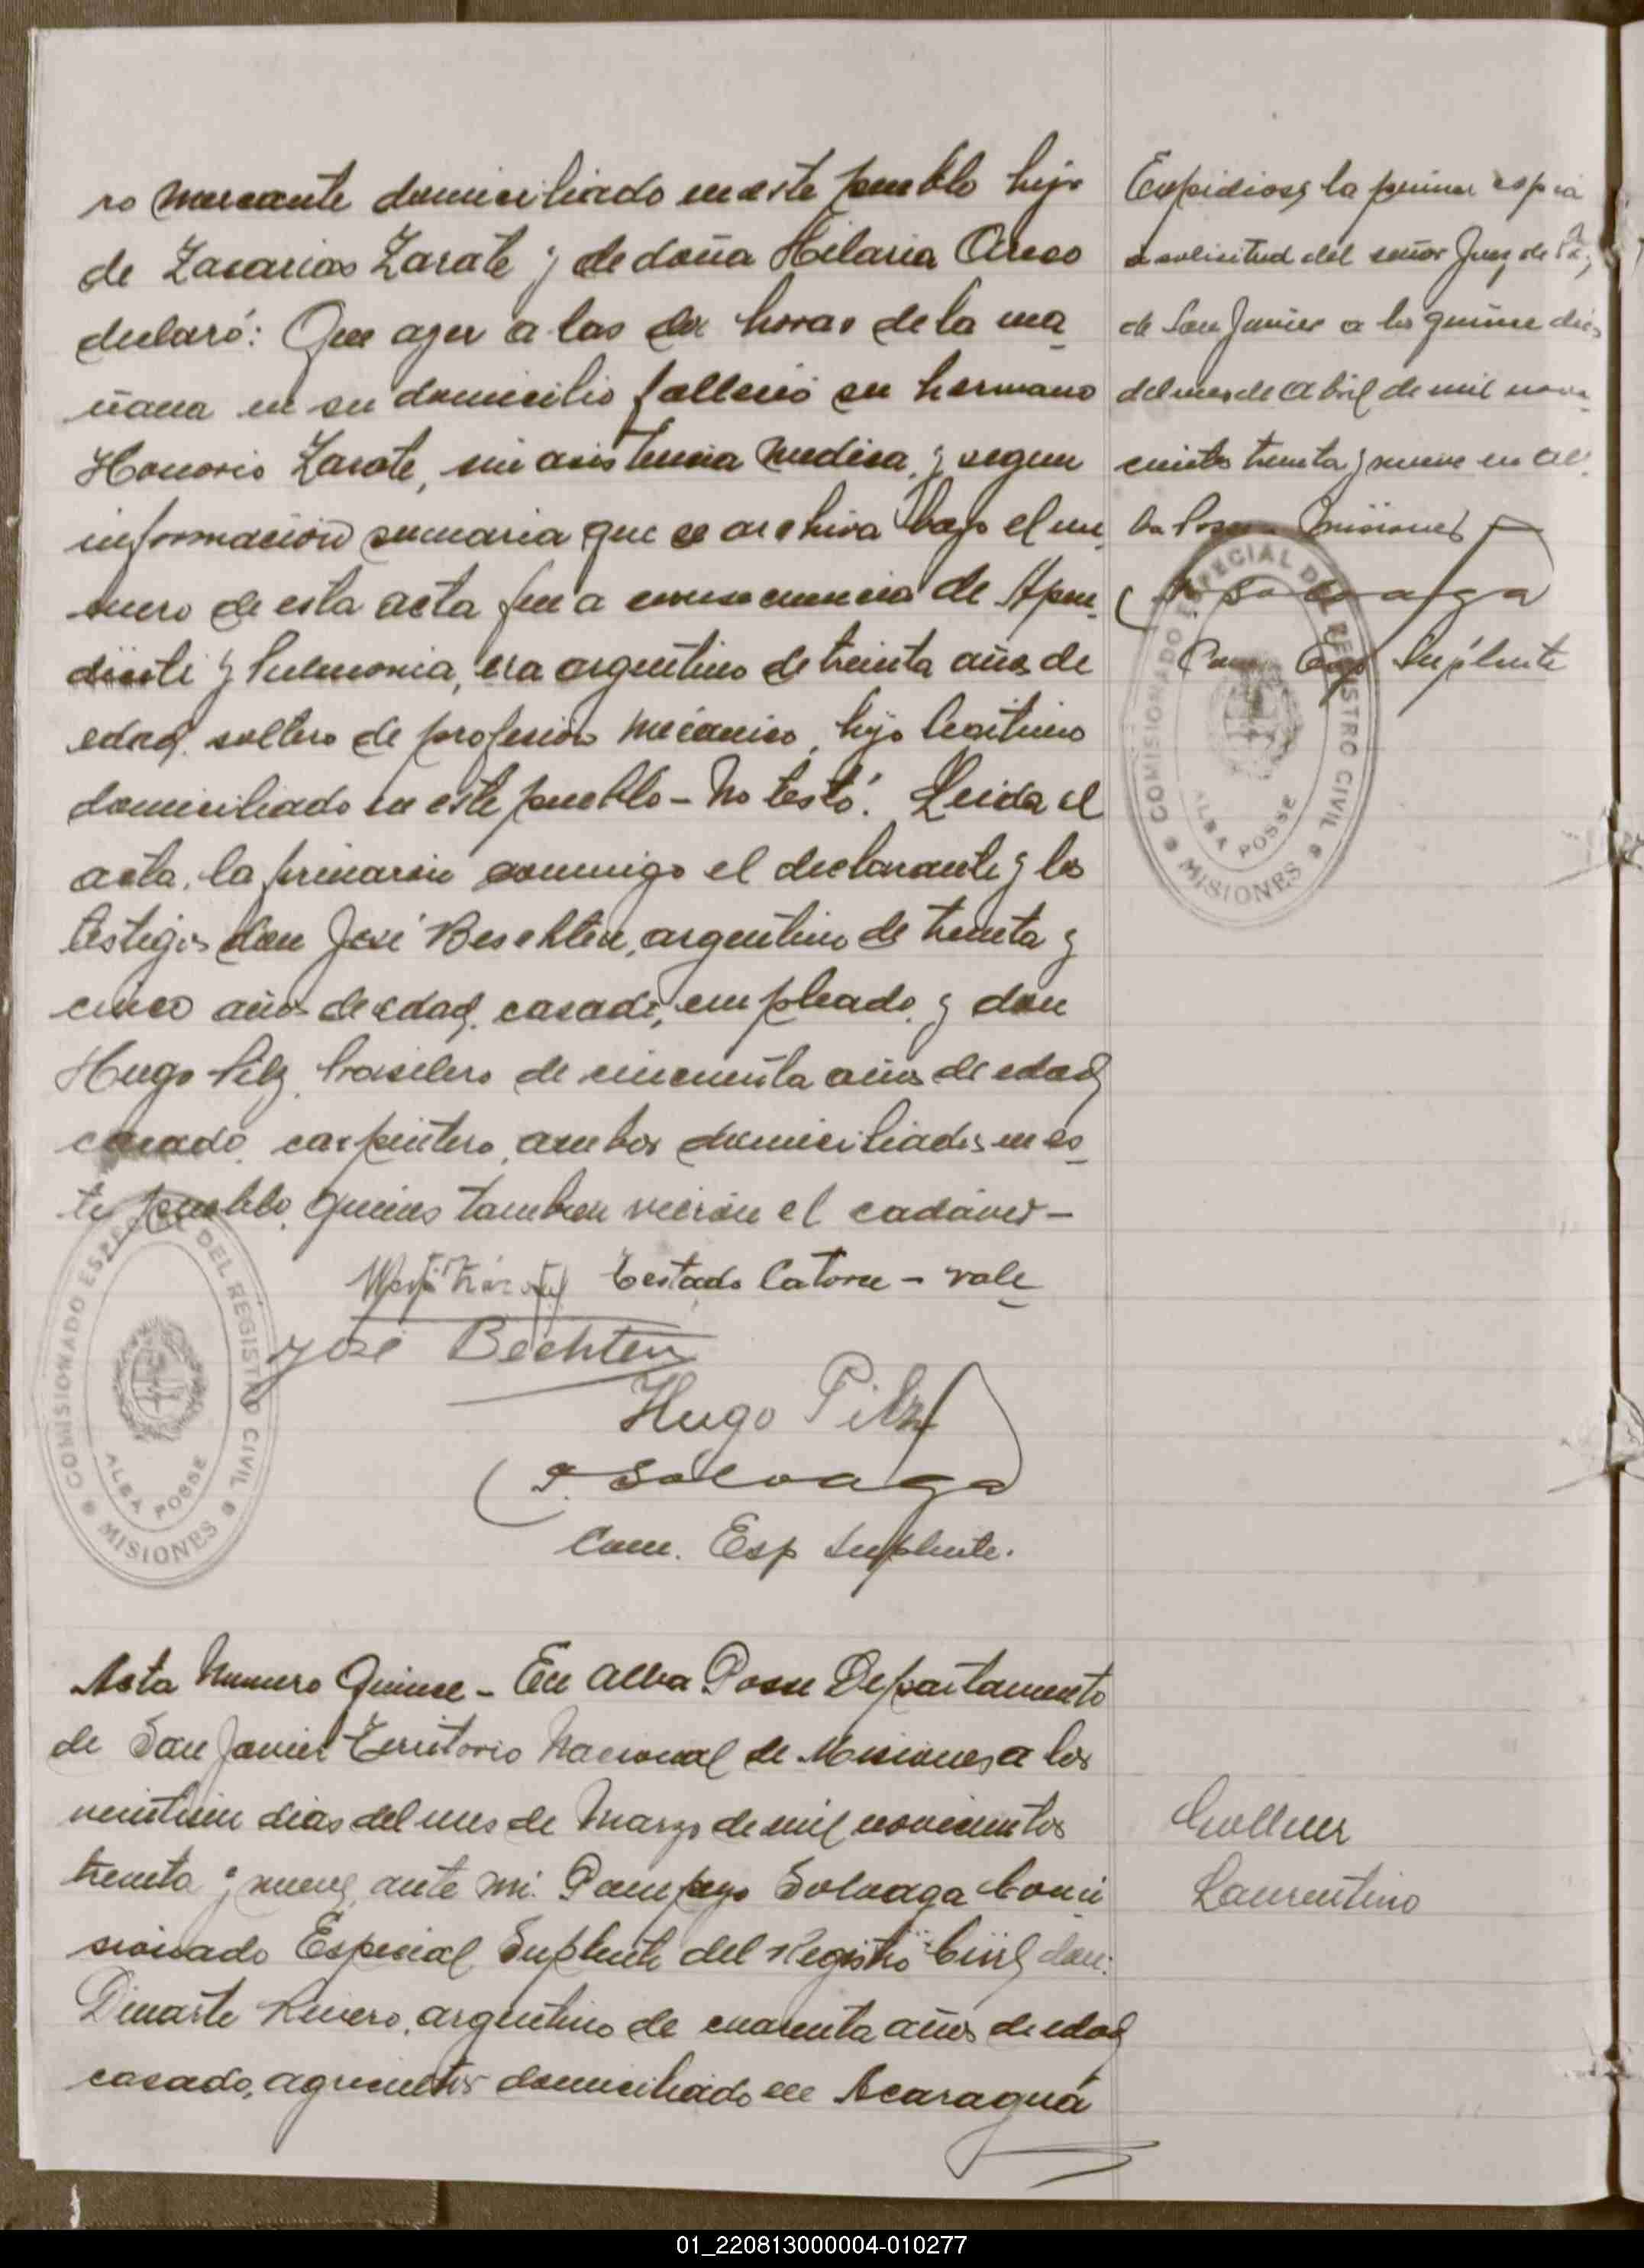 ro Mercante domiciliado en este pueblo hijo
de Zacarias Zarate y de doña Hilaria
declaró: Que ayer a las horas de la ma
ñana en su domicilio fallecio su hermano
Honorio Zarate, sin asistencia medica, y segun
informacion sumaria que se archiva bajo el nu
mero de esta acta fue a consecuencia de Apen
y Pulmonia, era argentino de treinta años de
edad, soltero de profesion mecanico, hijo legitimo
domiciliado en este pueblo - No testó. Leida el
acta, la firmaron conmigo el declarante y los
testigos don José Beschten, argentino de treinta y
cinco años de edad, casado, empleado, y don
Hugo Pilz, brasilero de cincuenta años de edad
casado, carpintero, ambos domiciliados en es
te pueblo, quienes tambien vieron el cadaver -
Testado Catorce - vale
José Bechten
Hugo Pilz
P. Solvaga
Com. Esp Suplente.
COMISIONADO ESPECIAL DEL REGISTRO CIVIL
ALBA POSSE
MISIONES
Acta Numero Quince - En Alba Posse Departamento
de San Javier Territorio Nacional de Misiones, a los
dias del mes de Marzo de mil novecientos
treinta y nueve, ante mi. Pompeyo Solvaga Comi
sionado Especial Suplente del Registro Civil, don:
Dinarte Rivero, argentino de cuarenta años de edad
casado, agricultor domiciliado en Acaraguá
Expidiose la primer copia
a solicitud del señor Juez de Paz
de San Javier a los quince dias
del mes de Abril de mil nove
cientos treinta y nueve en Al
ba Posse Misiones
P. Solvaga
Com. Esp Suplente
COMISIONADO ESPECIAL DEL REGISTRO CIVIL
ALBA POSSE
MISIONES
Laurentino
01_220813000004-010277